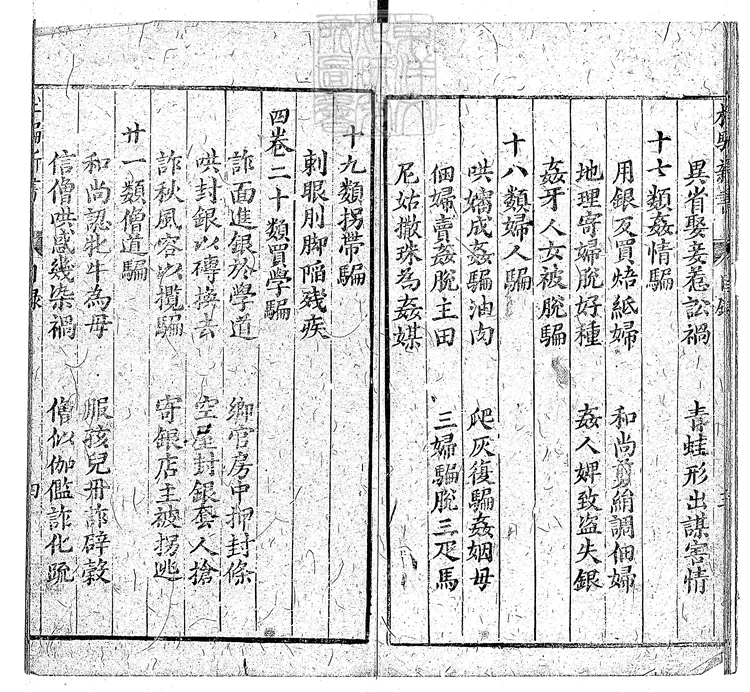 異省娶妾惹訟禍　青蛙形出謀害情
十七類姦情騙
用銀反買焙紙婦　和尚剪絹調佃婦
地理寄婦脫好種　姦人婢致盜失銀
姦牙人女被脫騙
十八類婦人騙
哄嬸成姦騙油肉　爬灰復騙姦姻母
佃婦賣姦脫主田　三婦騙脫三疋馬
尼姑撒珠為姦媒
十九類拐帶騙
刺眼刖脚陷殘疾
四卷二十類買學騙
詐面進銀於學道　鄉官房中押封條
哄封銀以磚換去　空屋封銀套人搶
詐秋風客以攬騙　寄銀店主被拐逃
廿一類僧道騙
和尚認牝牛為母　服孩兒丹詐辟穀
信僧哄惑幾染禍　僧似伽藍詐化疏